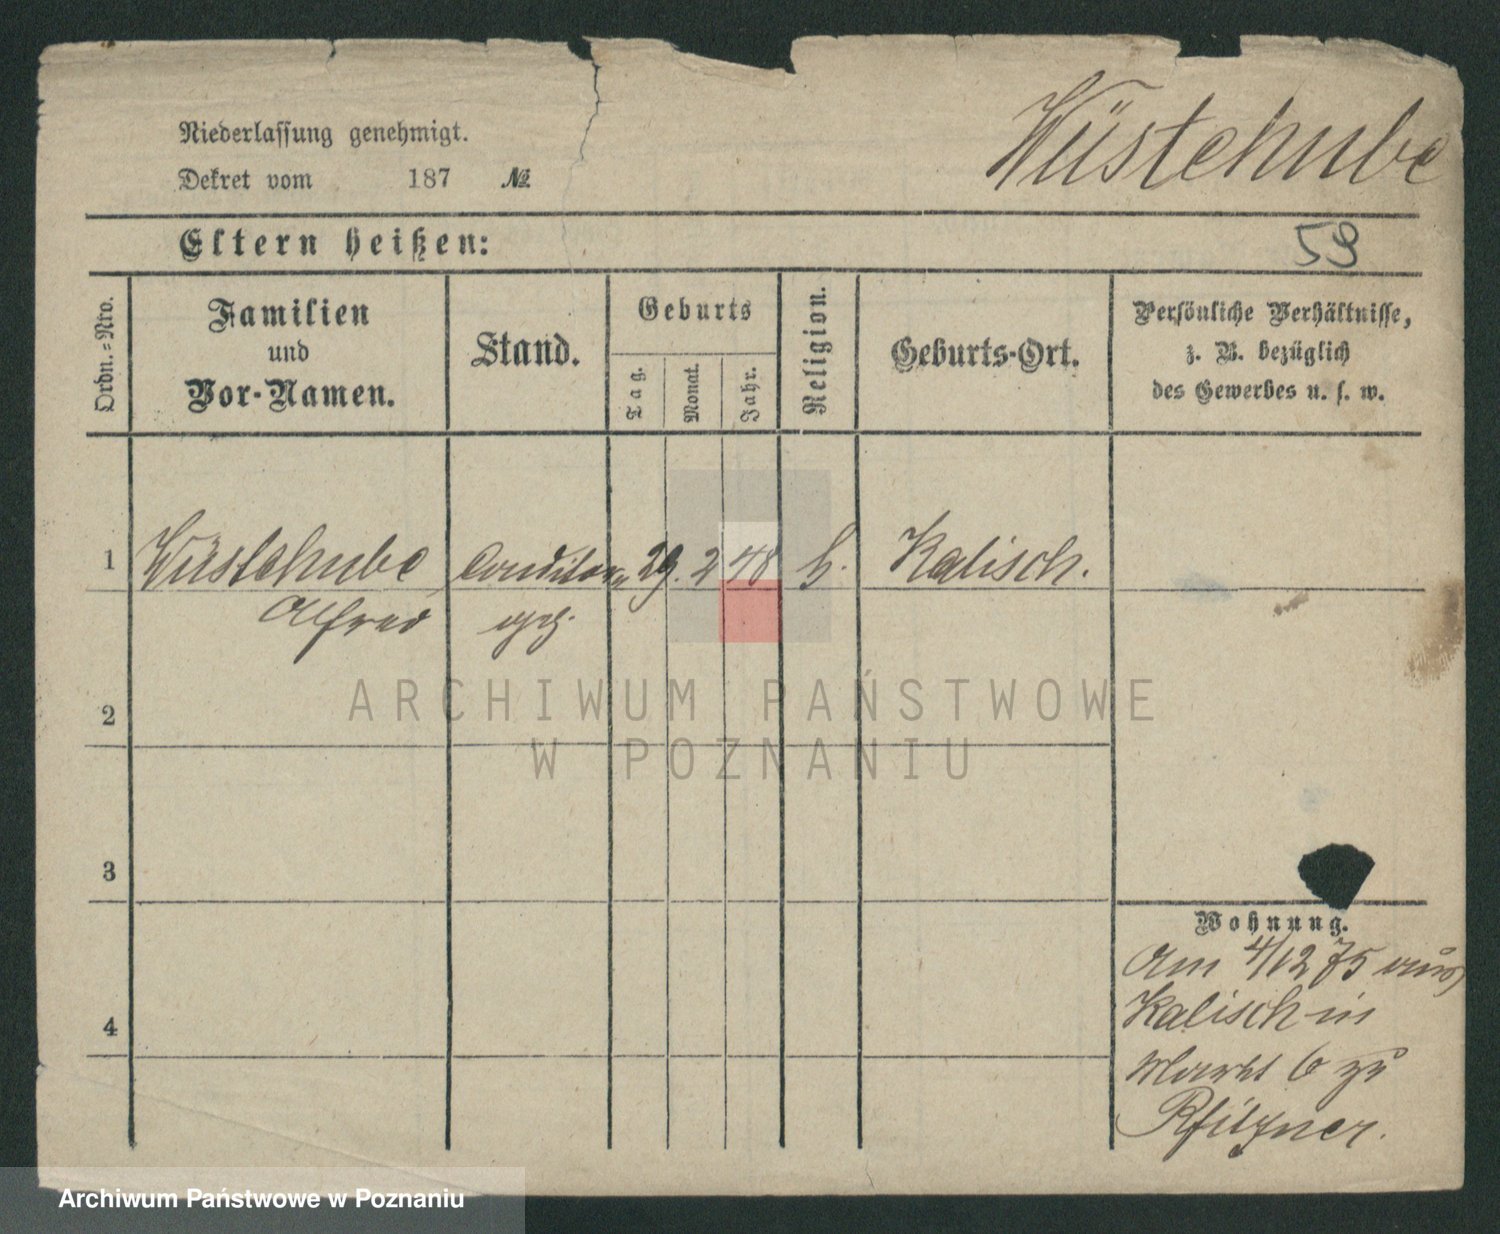 Wüstehube
Niederlassung genehmigt.
Dekret vom 187 №
Eltern heißen:
59
Ordn.-Nro.
Familien
und
Vor-Namen.
Stand.
Geburts
Tag.
Monat.
Jahr.
Religion.
Geburts-Ort.
Persönliche Verhältnisse,
z. B. bezüglich
des Gewerbes u. s. w.
1 Wüstehube Conditor 29. 2 48 Kalisch.
Alfred
ARCHIWUM PAŃSTWOWE
W POZNANIU
2
3
4
Wohnung.
Am 4/12 75 aus
Kalisch in
Markt 6 zu
Pfitzner.
Archiwum Państwowe w Poznaniu